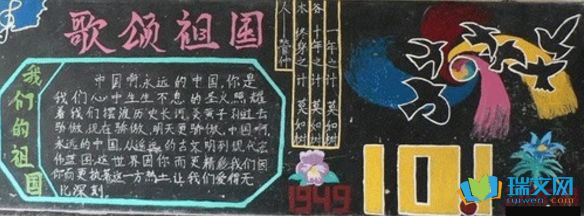 歌颂祖国
我们的祖国
中国啊,永远的中国,你是
我们心中生生不息的圣火,照耀
着我们摆渡历史长河,炎黄子孙过去
骄傲,现在骄傲,明天更骄傲,中国啊,
永远的中国,从遥远的古文明到现代宏
伟蓝图,这世界因你而更精彩,我们因
你而更执着这一方热土,让我们爱得无
比深刻.
一年之计 莫如树
谷 十年之计 莫如树
木 终身之计 莫如树
人 管仲
1949
10!
瑞文网
ruiwen.com